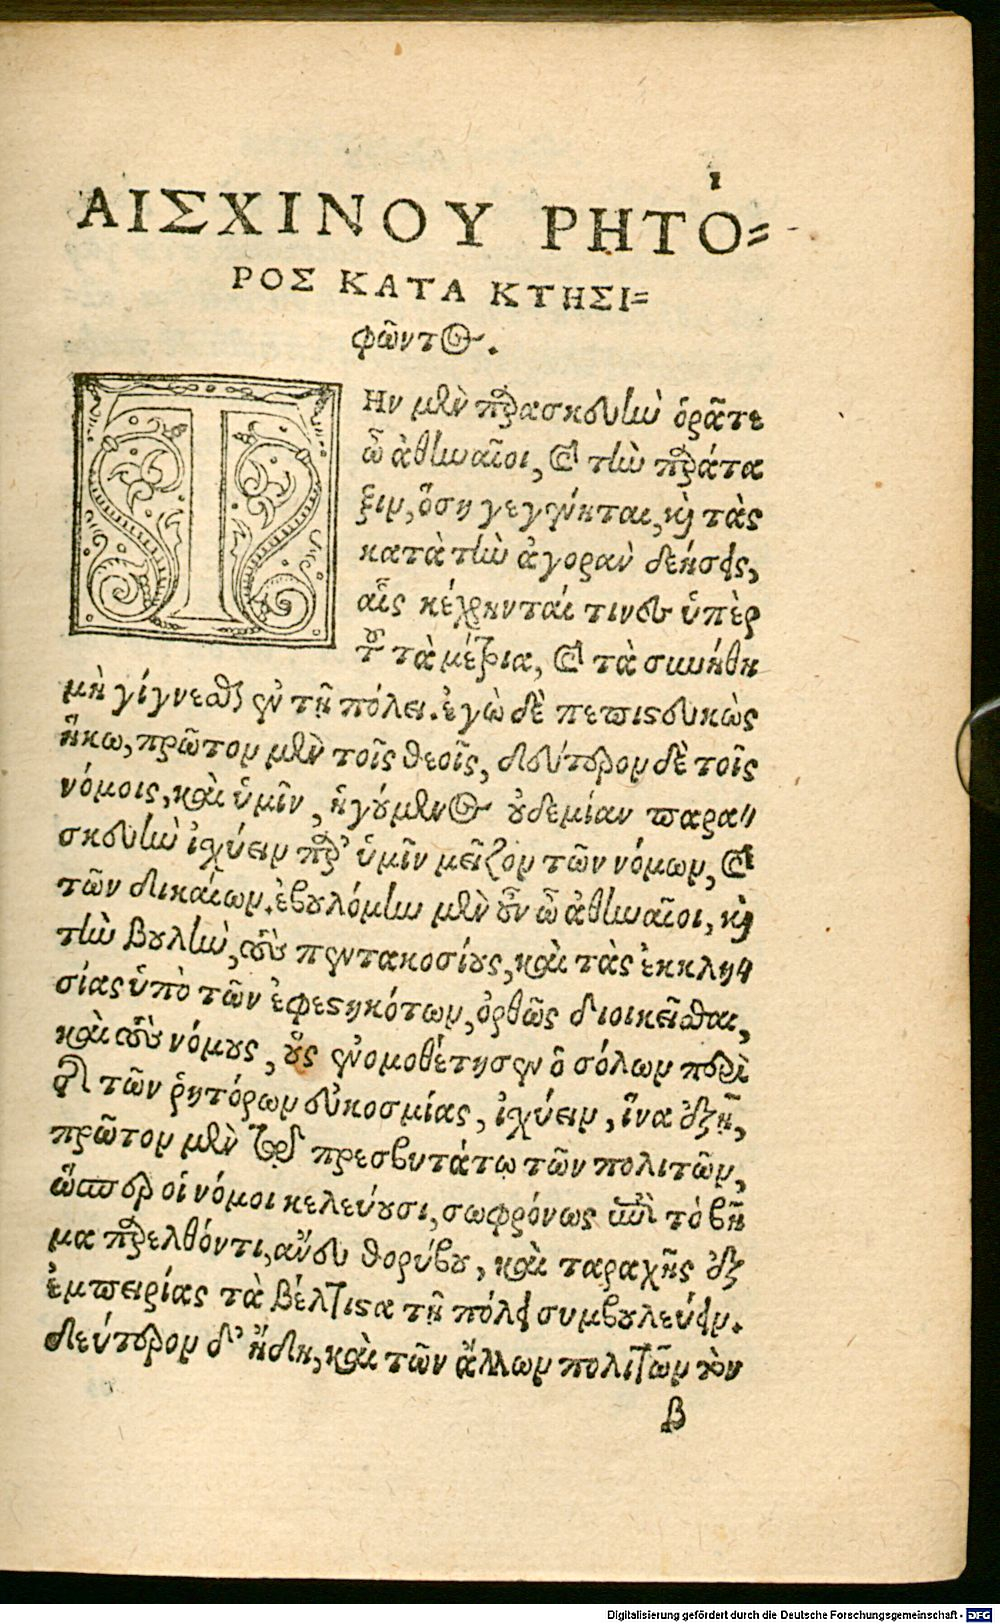 ΑΙΣΧΙΝΟΥ ΡΗΤΌ=
ΡΟΣ ΚΑΤΑ ΚΤΗΣΙ=
φῶντος.
ΤΗν μὲν παρασκευὴν ὁρᾶτε
ὦ ἀθηναῖοι, καὶ τὴν παράτα
ξιν, ὅση γεγένηται, καὶ τὰς
κατὰ τὴν ἀγορὰν δεήσεις,
αἷς κέχρηνταί τινες ὑπὲρ
τοῦ τὰ μέτρια, καὶ τὰ συνήθη
μὴ γίγνεσθαι ἐν τῇ πόλει. ἐγὼ δὲ πεπιστευκὼς
ἥκω, πρῶτον μὲν τοῖς θεοῖς, δεύτερον δὲ τοῖς
νόμοις, καὶ ὑμῖν, ἡγούμενος οὐδεμίαν παρα=
σκευὴν ἰσχύειν παρ’ ὑμῖν μεῖζον τῶν νόμων, καὶ
τῶν δικαίων. ἐβουλόμην μὲν οὖν ὦ ἀθηναῖοι, καὶ
τὴν βουλὴν, τοὺς πεντακοσίους, καὶ τὰς ἐκκλη=
σίας ὑπὸ τῶν ἐφεστηκότων, ὀρθῶς διοικεῖσθαι,
καὶ τοὺς νόμους, οὓς ἐνομοθέτησεν ὁ σόλων περὶ
τῆς τῶν ῥητόρων εὐκοσμίας, ἰσχύειν, ἵνα ἐξῇ,
πρῶτον μὲν τῷ πρεσβυτάτῳ τῶν πολιτῶν,
ὥσπερ οἱ νόμοι κελεύουσι, σωφρόνως ἐπὶ τὸ βῆ
μα παρελθόντι, ἄνευ θορύβου, καὶ ταραχῆς ἐξ
ἐμπειρίας τὰ βέλτιστα τῇ πόλει συμβουλεύειν.
δεύτερον δ’ ἤδη, καὶ τῶν ἄλλων πολιτῶν τὸν
β
Digitalisierung gefördert durch die Deutsche Forschungsgemeinschaft - DFG